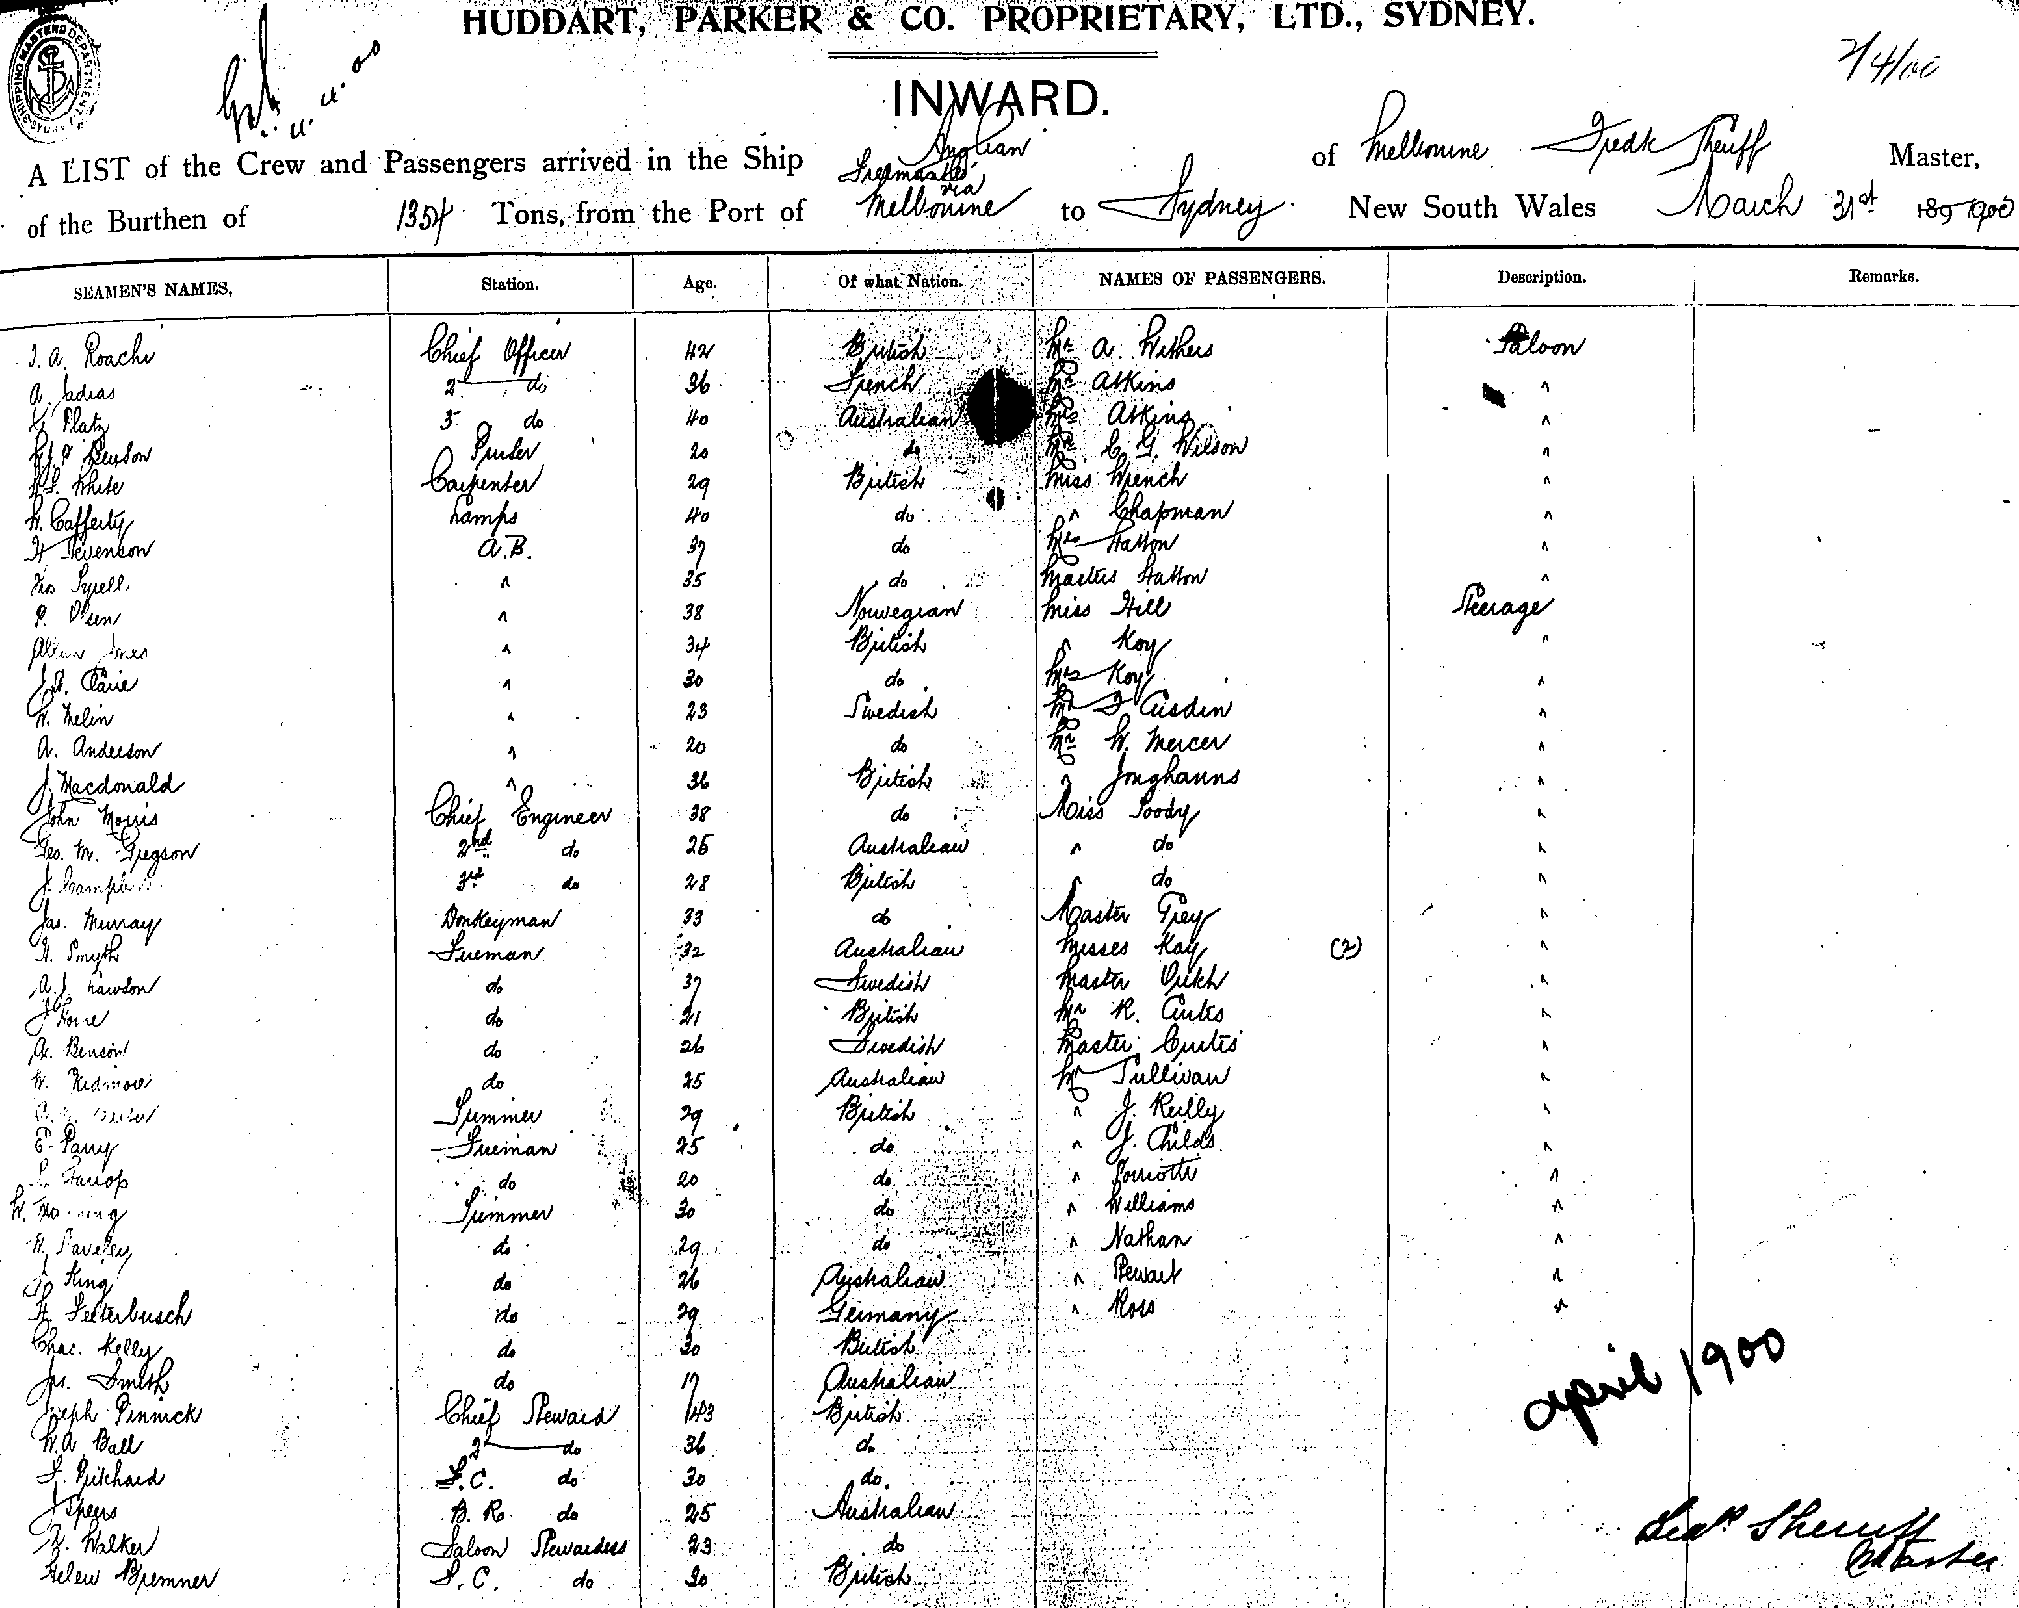 HUDDART, PARKER & CO. PROPRIETARY, LTD., SYDNEY.
2/4/00
INWARD.
A LIST of the Crew and Passengers arrived in the Ship Anglian of Melbourne Fredk Sheriff Master,
of the Burthen of 1354 Tons, from the Port of Fremantle via Melbourne to Sydney New South Wales March 31st 189 1900
SEAMEN'S NAMES. Station. Age. Of what Nation. NAMES OF PASSENGERS. Description. Remarks.
Roache Chief Officer 42 British Mr A. Withers Saloon
A. 2 do 36 French Mr Atkins "
Platz 3 do 40 Australian Mrs Atkins "
Purser 20 do Mr C. G. Wilson "
White Carpenter 29 British Miss Wrench "
W. Cafferty Lamps 40 do " Chapman "
H Stevenson A.B. 37 do Mrs Hatton "
" 35 do Master Hatton "
P. Olsen " 38 Norwegian Miss Hill Steerage
" 34 British " Koy "
" 30 do Mrs Koy "
W. Melin " 23 Swedish Mr "
A. Anderson " 20 do Mr W. Mercer "
J. Macdonald " 36 British " Jonghanns "
John Morris Chief Engineer 38 do Miss Soody "
Geo. M. Gregson 2nd do 25 Australian " do "
J. 3rd do 28 British " do "
Jas. Murray Donkeyman 33 do Master Grey "
H. Smyth Fireman 32 Australian Misses Kay (2) "
A. J. Lawson do 37 Swedish Master "
J. do 21 British Mr R. Curtis "
A. Benson do 26 Swedish Master Curtis "
W. do 25 Australian Mr Sullivan "
Trimmer 29 British " J. Reilly "
E. Parry Fireman 25 do " J. Childs "
do 20 do " "
W. Trimmer 30 do " Williams "
do 29 do " Nathan "
J. King do 26 Australian " Stewart "
do 29 Germany " Ross "
Chas. Kelly do 30 British
Jas. Smith do 19 Australian
Joseph Pinnick Chief Steward 43 British
W. A. Ball 2 do 36 do
F. Pritchard F.C. do 30 do
J Speers B.R. do 25 Australian
Walker Saloon Stewardess 23 do
Helen Bremner F.C. do 30 British
april 1900
Fredk Sheriff
Master